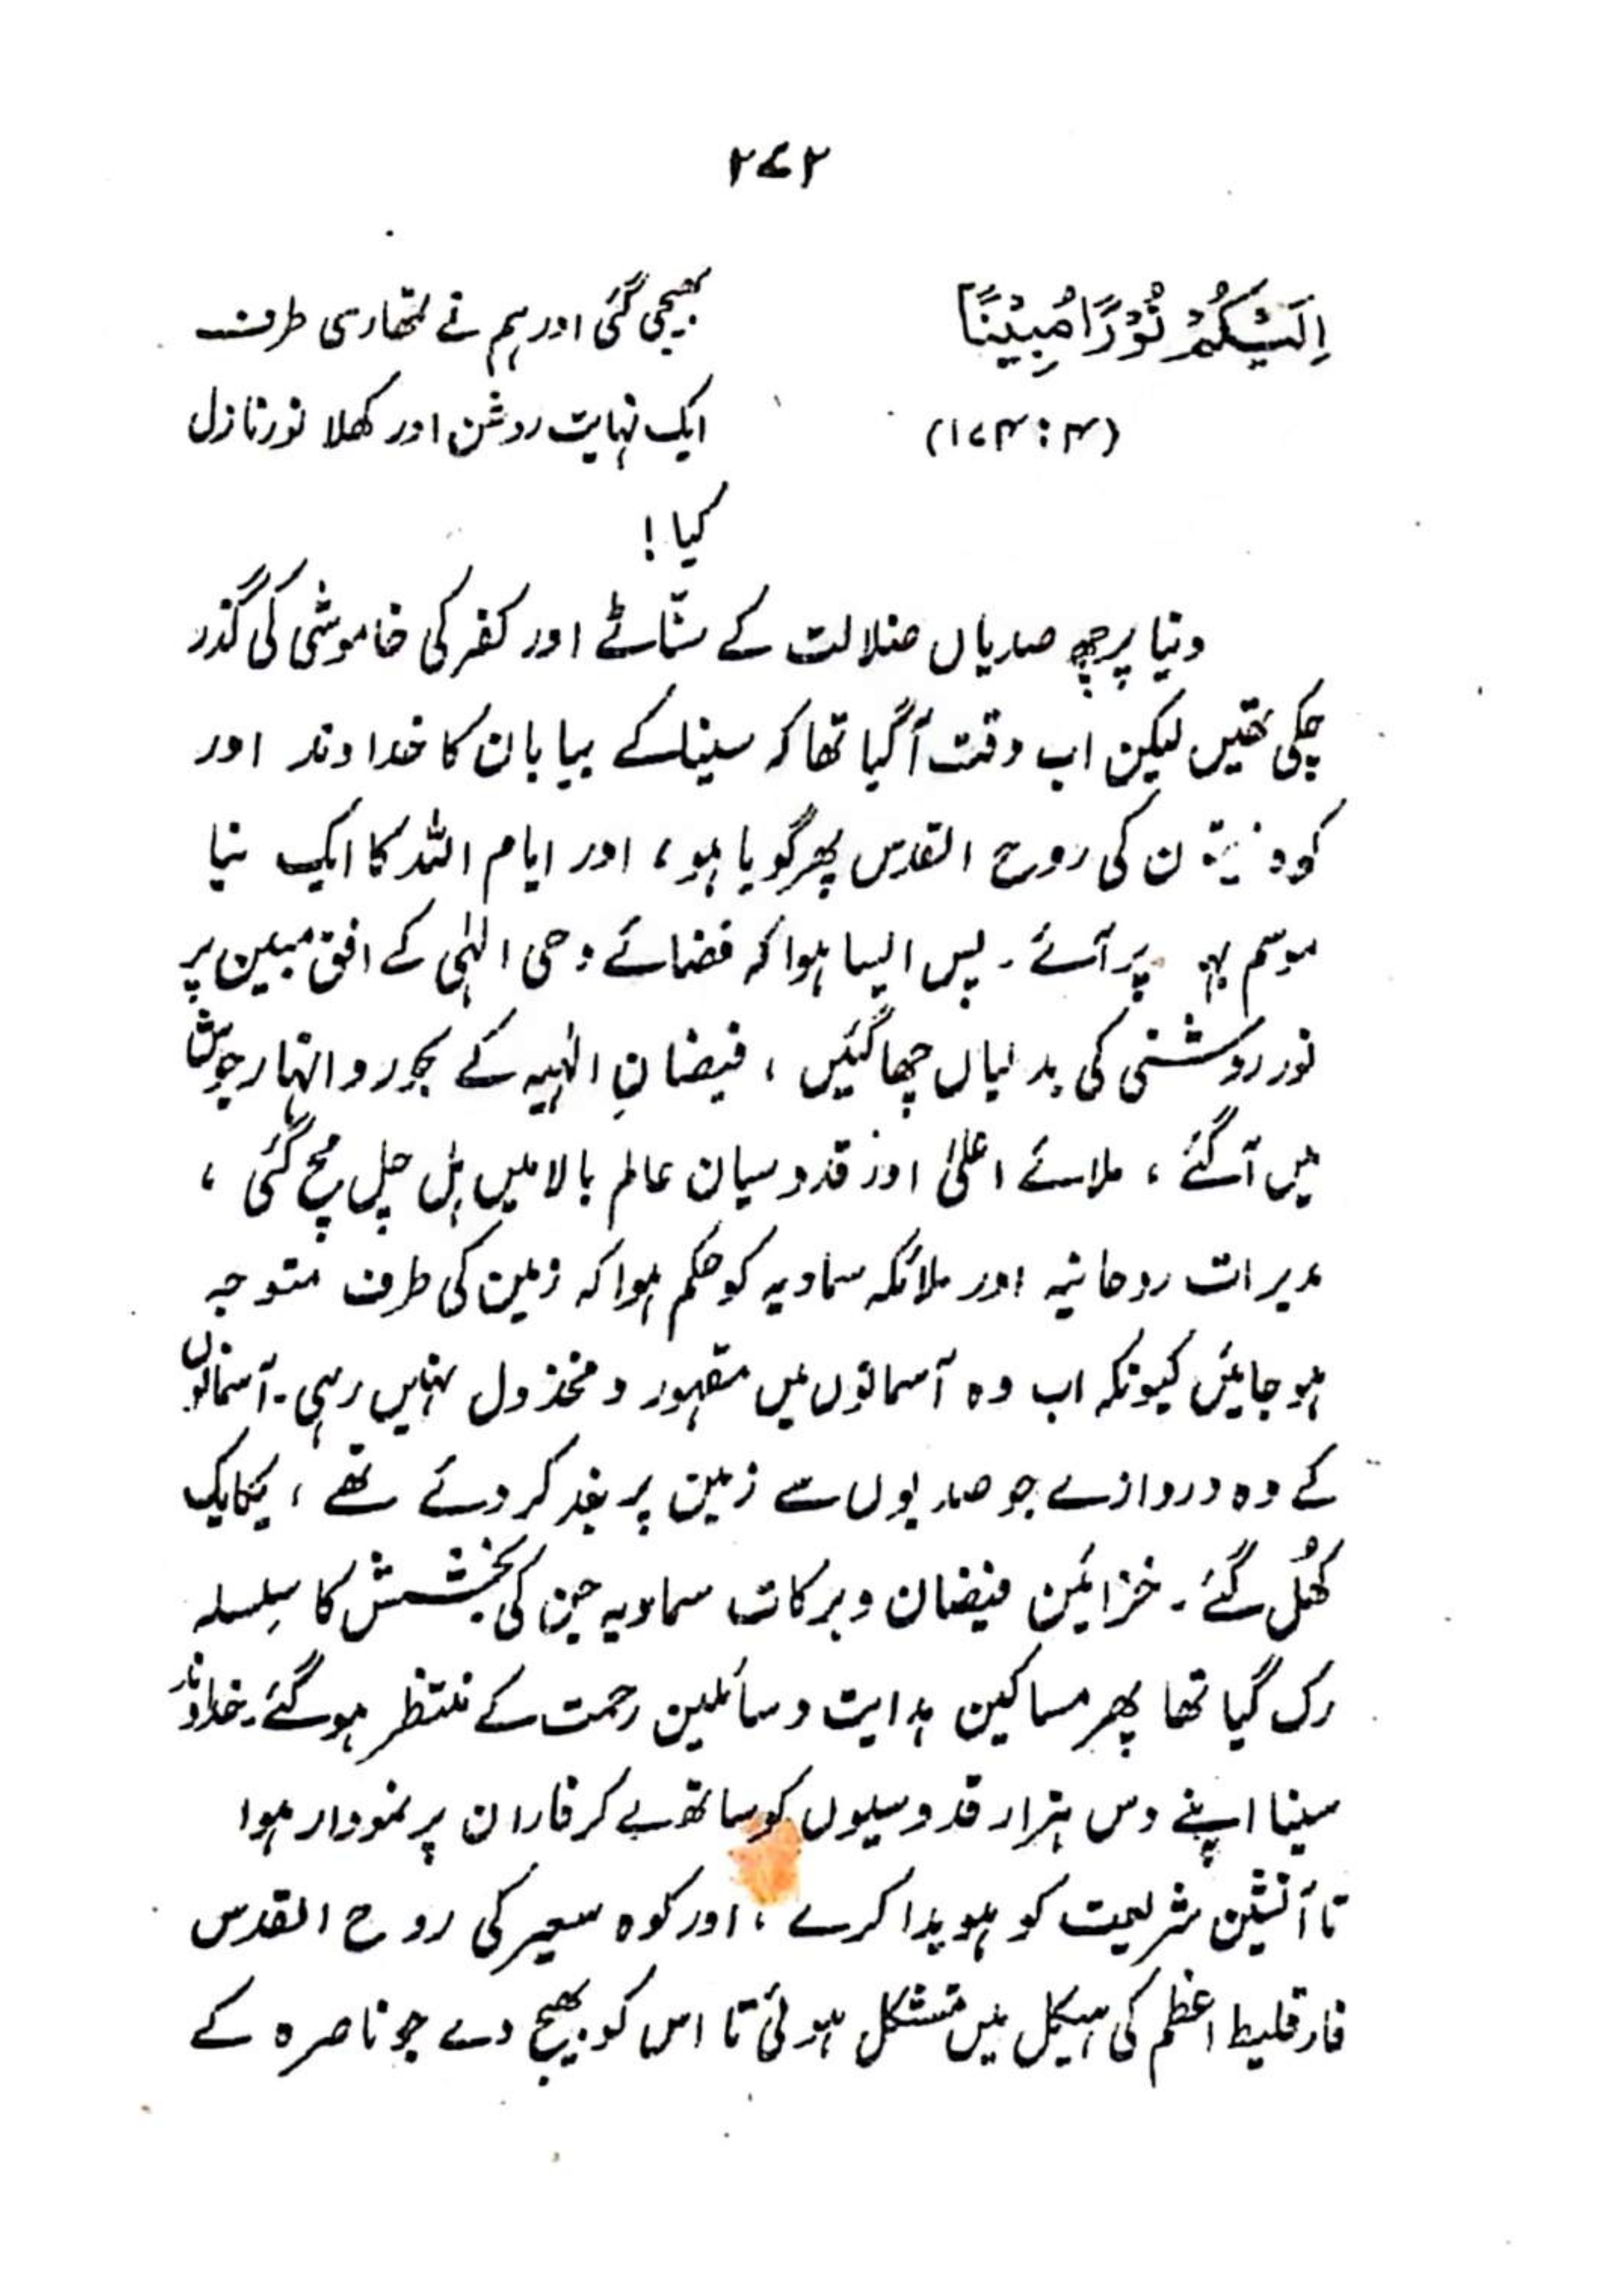 ۲۷۲
اِلَیْکُمْ نُوْرًا مُّبِیْنًا
(۱۷۴:۴)
بھیجی گئی اور ہم نے تمھاری طرف
ایک نہایت روشن اور کھلا نور نازل
کیا!
دنیا پر چھ صدیاں ضلالت کے سنّاٹے اور کفر کی خاموشی کی گذر
چکی تھیں لیکن اب وقت آ گیا تھا کہ سینا کے بیابان کا خداوند اور
کوہ زیتون کی روح القدس پھر گویا ہو، اور ایام اللہ کا ایک نیا
موسم پر آئے۔ پس ایسا ہوا کہ فضائے وحی الٰہی کے افق مبین پر
نور روشنی کی بدلیاں چھا گئیں، فیضانِ الٰہیہ کے بحور و انہار جوش
میں آ گئے، ملائے اعلیٰ اور قدوسیان عالم بالا میں ہل چل مچ گئی،
مدیرات روحانیہ اور ملائکہ سماویہ کو حکم ہوا کہ زمین کی طرف متوجہ
ہو جائیں کیونکہ اب وہ آسمانوں میں مقہور و مخذول نہیں رہی۔ آسمانوں
کے وہ دروازے جو صدیوں سے زمین پر بند کر دئے تھے، یکایک
کھُل گئے۔ خزائین فیضان و برکات سماویہ جن کی بخشش کا سلسلہ
رک گیا تھا پھر مساکین ہدایت و سائلین رحمت کے منتظر ہو گئے۔ خداوند
سینا اپنے دس ہزار قدوسیوں کو ساتھ لے کر فاران پر نمودار ہوا
تا آتشین شریعت کو ہویدا کرے، اور کوہ سعیر کی روح القدس
فارقلیط اعظم کی ہیکل میں متشکل ہوئی تا اس کو بھیج دے جو ناصرہ کے